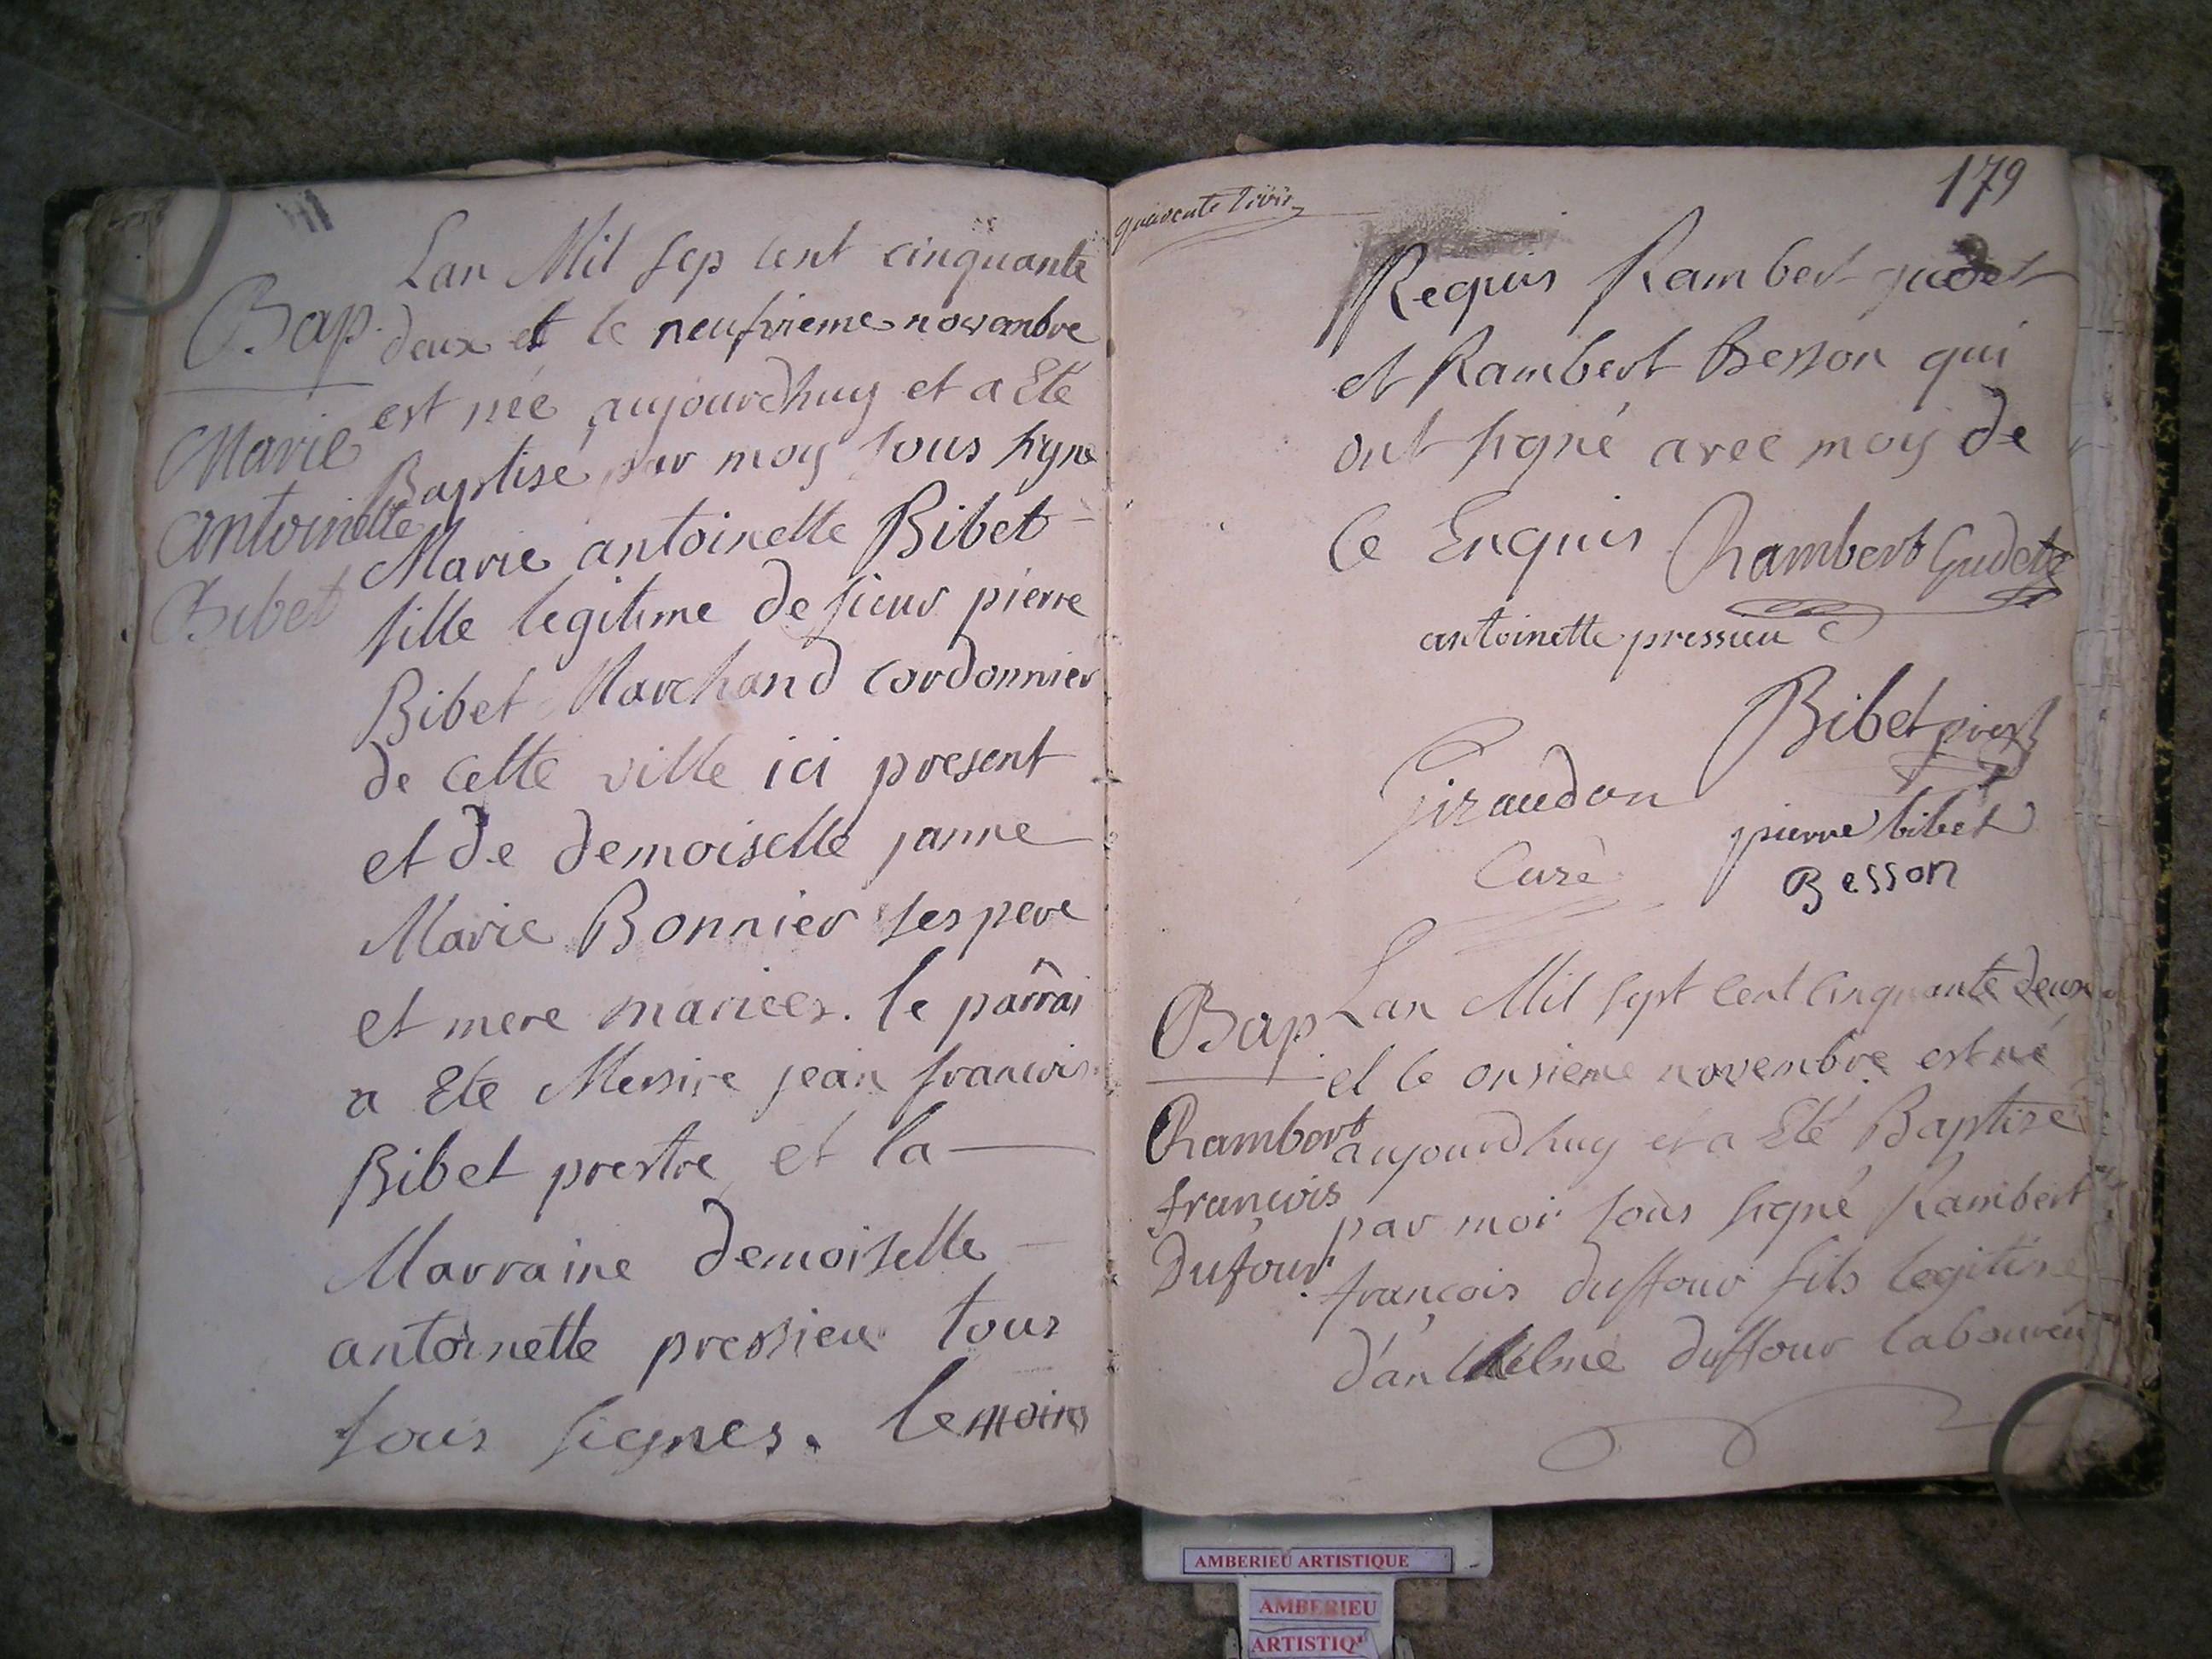 Lan Mil sep cent cinquante
Bap. deux et le neufvieme novembre
est née aujourdhuy et a Eté
Marie
Baptisé par moy sous signé
antoinette
Marie antoinette Bibet
Bibet
fille legitime de sieur pierre
Bibet Marchand cordonnier
de cette ville ici present
et de demoiselle janne
Marie Bonnier ses pere
et mere mariees. le parrai
a Eté Messire jean francois
Bibet prestre et la
Marraine demoiselle
antoinette pressieu tous
sous signes. temoins
quarente
179
Requis Rambert gudet
et Rambert Besson qui
ont signé avec moy de
ce Enquis Rambert Gudet
antoinette pressieu
Bibet
Giraudon
Curé
pierre bibet
Besson
Bap Lan Mil sept cent cinquante deux
et le onsieme novembre est né
Rambert aujourdhuy et a Eté Baptisé
françois
par moi sous signé Rambert
Dufour.
françois duffour fils legitime
d'anthelme duffour laboureu
AMBERIEU ARTISTIQUE
AMBERIEU
ARTISTIQ